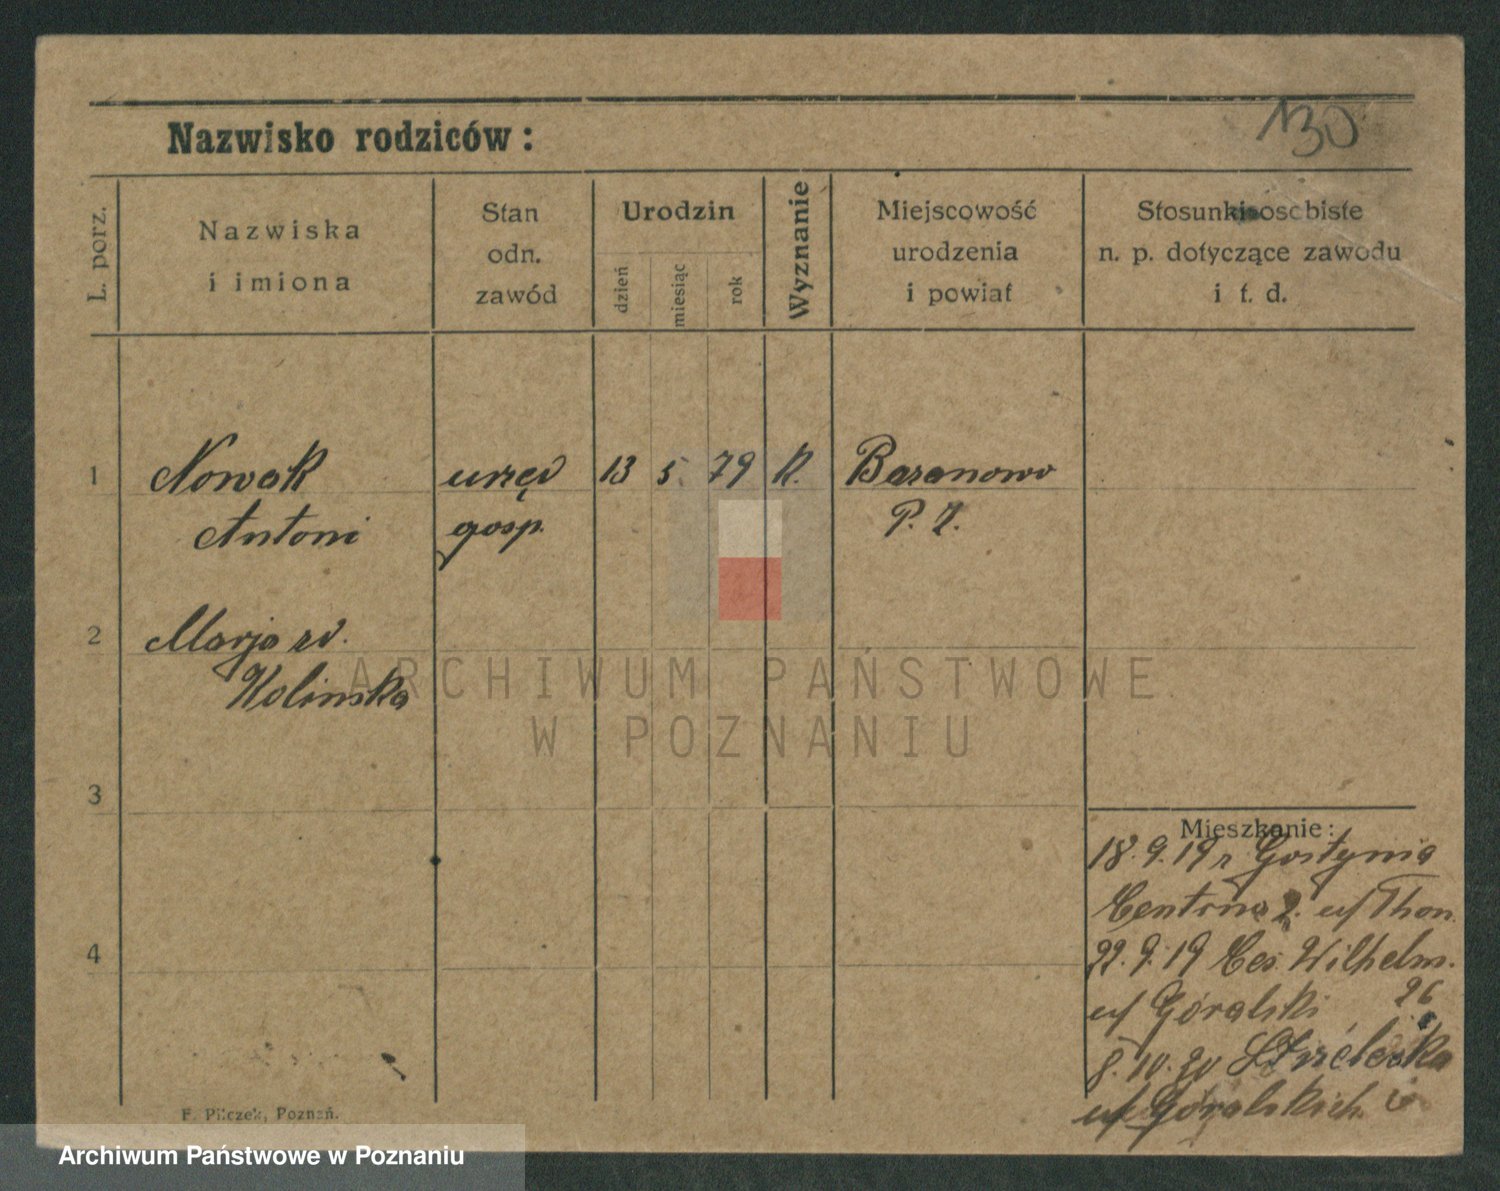 130
Nazwisko rodziców:
L. porz.
Nazwiska
i imiona
Stan
odn.
zawód
Urodzin
dzień
miesiąc
rok
Wyznanie
Miejscowość
urodzenia
i powiat
Stosunki osobiste
n. p. dotyczące zawodu
i t. d.
1 Nowak urzęd 13 5. 79 K. Baranowo
Antoni gosp. P. Z.
2 Marja rd.
Kolinska
3
4
Mieszkanie:
18.9.19 z Gostynia
22.9.19 Ces. Wilhelm.
26
u/ Góralski
8.10.20 Strzelecka
u/ Góralskich
F. Pilczek, Poznań.
ARCHIWUM PAŃSTWOWE
W POZNANIU
Archiwum Państwowe w Poznaniu